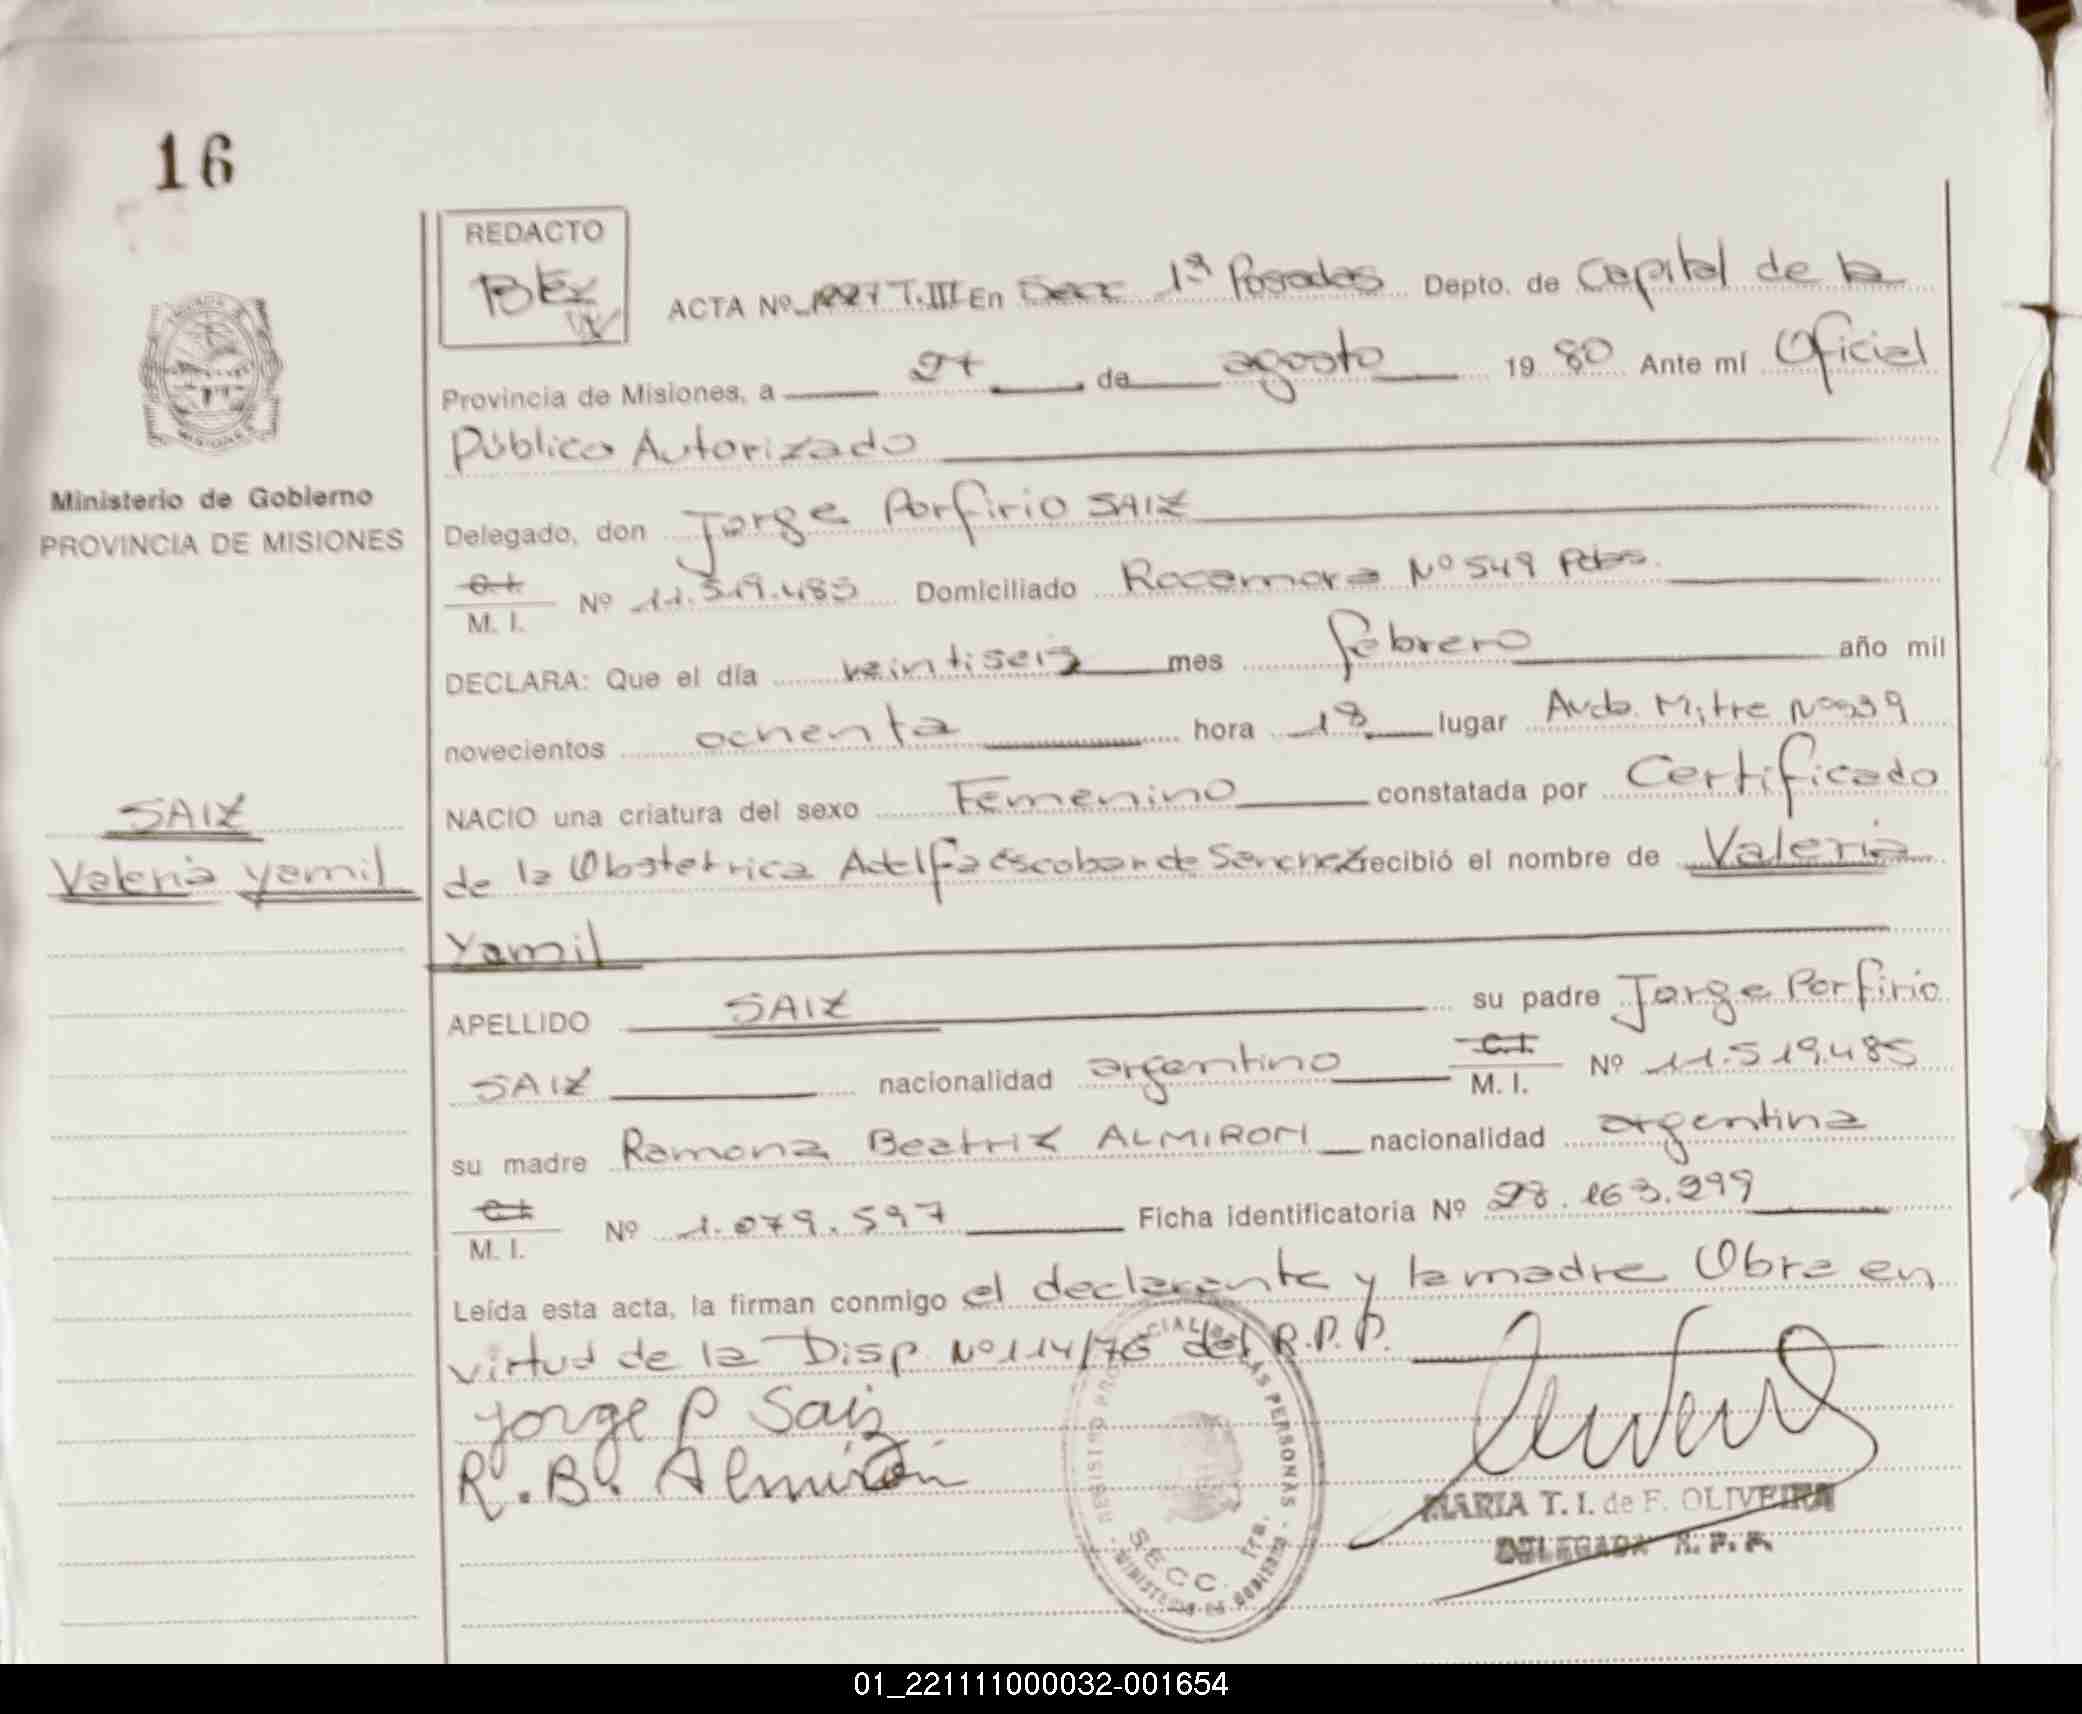 16
REDACTO
ACTA Nº 1227 T.III En Secc 1ª Posadas Depto. de Capital de la
Provincia de Misiones, a 27 de agosto 1980 Ante mí Oficial
Público Autorizado
MISIONES
Ministerio de Gobierno
PROVINCIA DE MISIONES
Delegado, don Jorge Porfirio SAIZ
C.I.
M. I. Nº 11.519.485 Domiciliado Rocamora Nº 549 Pdas.
DECLARA: Que el día veintiseis mes febrero año mil
novecientos ochenta hora 18 lugar Avda. Mitre Nº
NACIO una criatura del sexo Femenino constatada por Certificado
SAIZ
Valeria Yamil
de la Obstetrica Adelfa Escobar de Sanchez recibió el nombre de Valeria
Yamil
APELLIDO SAIZ su padre Jorge Porfirio
SAIZ nacionalidad argentino C.I. M. I. Nº 11.519.485
su madre Ramona Beatriz ALMIRON nacionalidad argentina
C.I.
M. I. Nº 1.079.597 Ficha identificatoria Nº 28.163.299
Leída esta acta, la firman conmigo el declarante y la madre Obra en
virtud de la Disp. Nº 114/76 del R.P.P.
Jorge P Saiz
R. B. Almirón
REGISTRO PROVINCIAL DE LAS PERSONAS
SECC. 1ra.
MINISTERIO DE GOBIERNO
MARIA T. I. de F. OLIVEIRA
DELEGADA R. P. P.
01_221111000032-001654